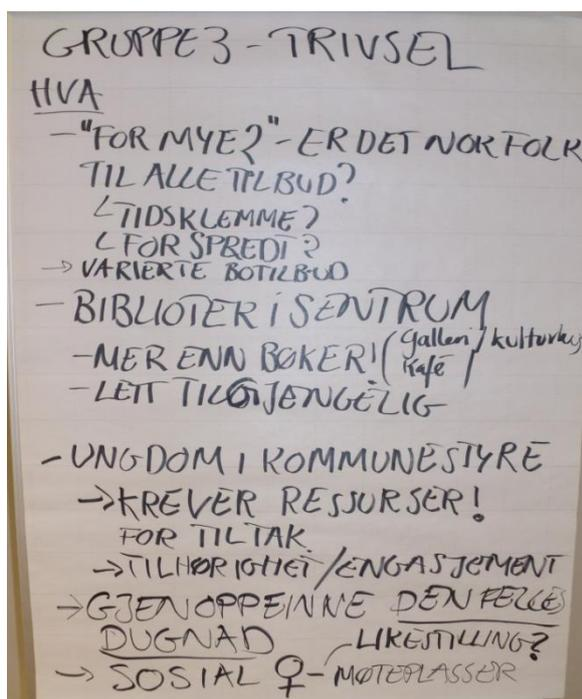 GRUPPE 3 - TRIVSEL
HVA
- "FOR MYE?" - ER DET NOK FOLK
TIL ALLE TILBUD?
TIDSKLEMME?
FOR SPREDT?
→ VARIERTE BOTILBUD
- BIBLIOTEK I SENTRUM
- MER ENN BØKER! (Galleri / kulturhus
Kafé)
- LETT TILGJENGELIG
- UNGDOM I KOMMUNESTYRE
→ KREVER RESSURSER!
FOR TILTAK
→ TILHØRIGHET / ENGASJEMENT
→ GJENOPPFINNE DEN FELLES
DUGNAD
- LIKESTILLING?
→ SOSIAL ♀ - MØTEPLASSER